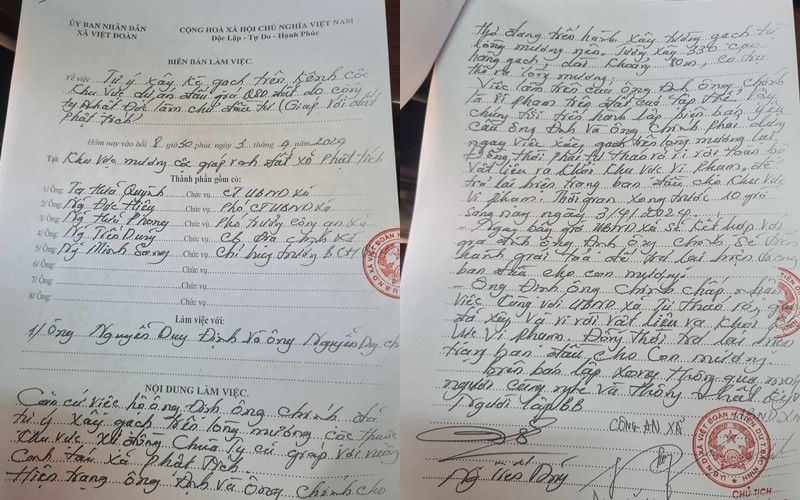 ỦY BAN NHÂN DÂN
XÃ VIỆT ĐOÀN
CỘNG HOÀ XÃ HỘI CHỦ NGHĨA VIỆT NAM
Độc Lập - Tự Do - Hạnh Phúc
BIÊN BẢN LÀM VIỆC.
Về việc: Tự ý xây kè gạch trên kênh cóc
Khu vực dự án đấu giá QSD đất do công
ty Đhất Đức làm chủ đầu tư (Giáp với đất
Phật tích)
Hôm nay vào hồi 8 giờ 30 phút, ngày 3 tháng 4 năm 2024
Tại: Khu vực mương cóc giáp ranh đất xã Phật tích
Thành phần gồm có:
1/ Ông Tạ Hữu Quỳnh Chức vụ CT UBND Xã
2/ Ông Ng Đức Hiếu Chức vụ Phó CT UBND Xã
3/ Ông Ng Hữu Phong Chức vụ Phó trưởng công an xã
4/ Ông Ng Tiến Dũng Chức vụ CB Địa chính xã
5/ Ông Ng Minh Chức vụ Chỉ huy trưởng BCH
6/ Ông Chức vụ
7/ Ông Chức vụ
8/ Ông Chức vụ
Làm việc với:
1/ Ông Nguyễn Duy Định và ông Nguyễn Duy
NỘI DUNG LÀM VIỆC.
Căn cứ việc hộ ông Định ông Chính đã
tự ý xây gạch trên lòng mương cóc thuộc
Khu vực xứ đồng giáp với
Canh tác xã Phật Tích.
Hiện trạng ông Định và ông Chính cho
thợ đang tiến hành xây tường gạch từ
lòng mương nên. Tường xây 330 cao
hàng gạch, dài khoảng 10m,
lòng mương.
Việc làm trên của ông Định ông Chính
là vi phạm trên đất của tập thể. Vậy
chúng tôi tiến hành lập biên bản yêu
cầu ông Định và ông Chính phải dừng
ngay việc xây gạch trên lòng mương lại
Đồng thời phải tự tháo rỡ
vật liệu ra khỏi khu vực vi phạm, để
trả lại hiện trạng ban đầu cho khu vực
vi phạm. Thời gian xong trước 10 giờ
sáng nay ngày 3/4/2024.
Ngay bây giờ UBND xã sẽ kết hợp với
gia đình ông Định ông Chính. Sẽ tiến
hành giải tỏa để trả lại hiện trạng
ban đầu cho con mương.
- Ông Định ông Chính chấp
việc cùng với UBND xã tự tháo rỡ
đã xây và vật liệu ra khỏi khu
vực vi phạm. Đồng thời trả lại hiện
trạng ban đầu cho con mương.
Biên bản lập xong thông qua mọi
người cùng nghe và thống nhất
Người lập BB
CÔNG AN XÃ
Ng Tiến Dũng
CHỦ TỊCH